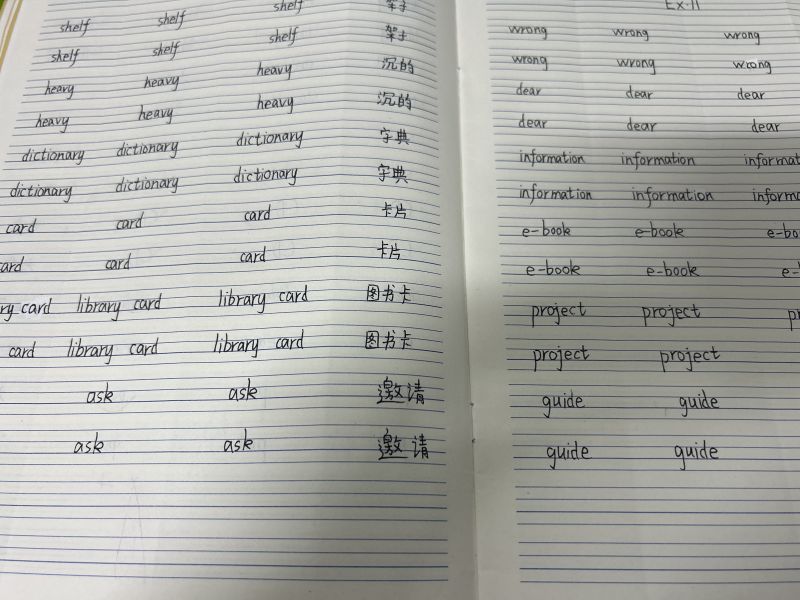 shelf 架子
shelf shelf shelf 架子
shelf shelf shelf 沉的
heavy heavy heavy 沉的
heavy heavy heavy
dictionary dictionary dictionary 字典
dictionary dictionary dictionary 字典
card card card 卡片
card card card 卡片
library card library card 图书卡
card library card library card 图书卡
ask ask 邀请
ask ask 邀请
Ex.11
wrong wrong wrong
wrong wrong wrong
dear dear dear
dear dear dear
information information informat
information information informa
e-book e-book e-bo
e-book e-book e-
project project
project project
guide guide
guide guide